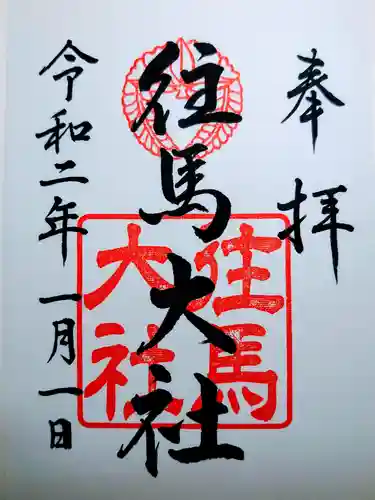 奉拝
往馬大社
令和二年一月一日
往馬
大社